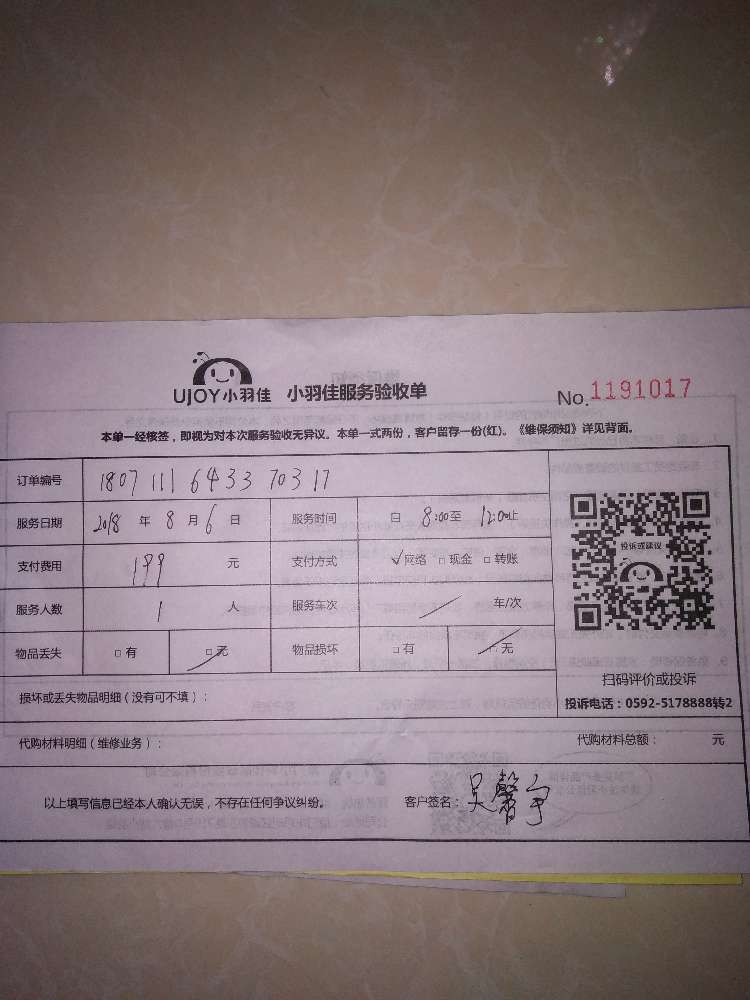 UJOY小羽佳 小羽佳服务验收单 No.1191017
本单一经核签，即视为对本次服务验收无异议。本单一式两份，客户留存一份(红)。《维保须知》详见背面。
订单编号 1807111643370317
服务日期 2018 年 8 月 6 日 服务时间 自 8:00至 12:00止
支付费用 199 元 支付方式 ✓网络 □现金 □转账
服务人数 1 人 服务车次 / 车/次
物品丢失 □有 □无 物品损坏 □有 □无
投诉或建议
扫码评价或投诉
损坏或丢失物品明细（没有可不填）：
投诉电话：0592-5178888转2
代购材料明细（维修业务）： 代购材料总额： 元
以上填写信息已经本人确认无误，不存在任何争议纠纷。 客户签名：吴馨宇